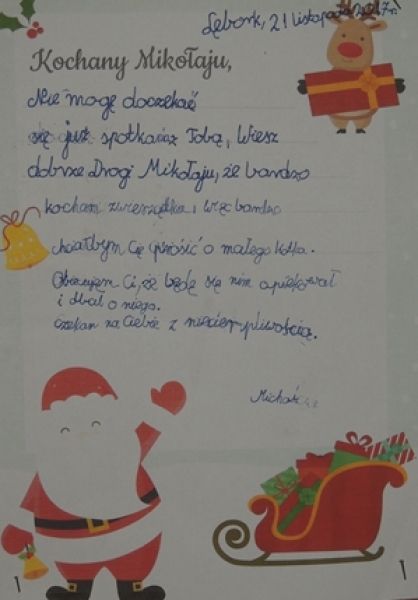 Lębork, 21 listopada 2017r.
Kochany Mikołaju,
Nie mogę doczekać
się już spotkania z Tobą, Wiesz
dobrze Drogi Mikołaju, że bardzo
kocham zwierzątka, więc bardzo
chciałbym Cię prosić o małego kotka.
Obiecujem Ci, że będę się nim opiekował
i dbał o niego.
Czekam na Ciebie z niecierpliwością.